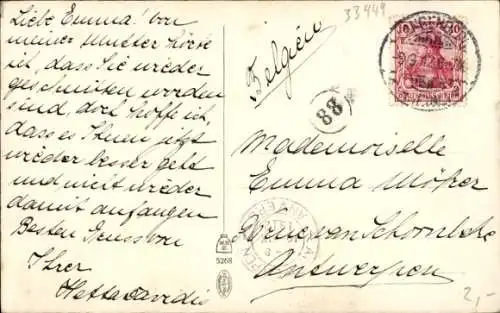 Liebe Emma! Von
meiner Mutter hörte
ich, dass Sie wieder
geschnitten worden
sind, doch hoffe ich,
dass es Ihnen jetzt
wieder besser geht
und nicht wieder
damit anfangen
Besten Gruss von
Ihrer
Hetta Davidis
33449
Belgien
88
Mademoiselle
Emma
Antwerpen
5268
2,-